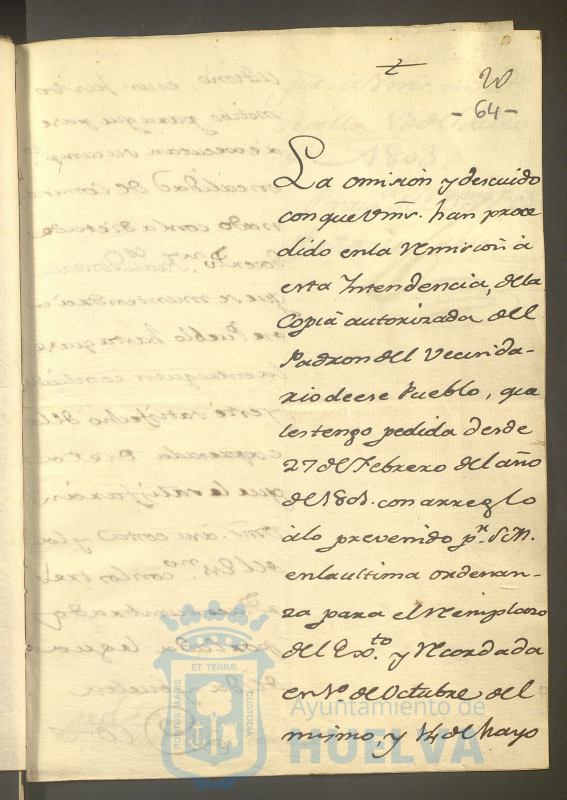 20
- 64 -
La omision y descuido
con que Vms. han proce
dido en la remision à
esta Intendencia, de la
Copia autorizada del
Padron del Vecinda-
rio de ese Pueblo, que
les tengo pedida desde
27 de Febrero del año
de 1801. con arreglo
à lo prevenido pr. S.M.
en la ultima ordenan-
za para el Reemplazo
del Exto. y Recordada
en 1º. de Octubre del
mismo, y 14 de Mayo
ET TERRÆ
PORTUS MARIS
CUSTODIA
Ayuntamiento de
HUELVA